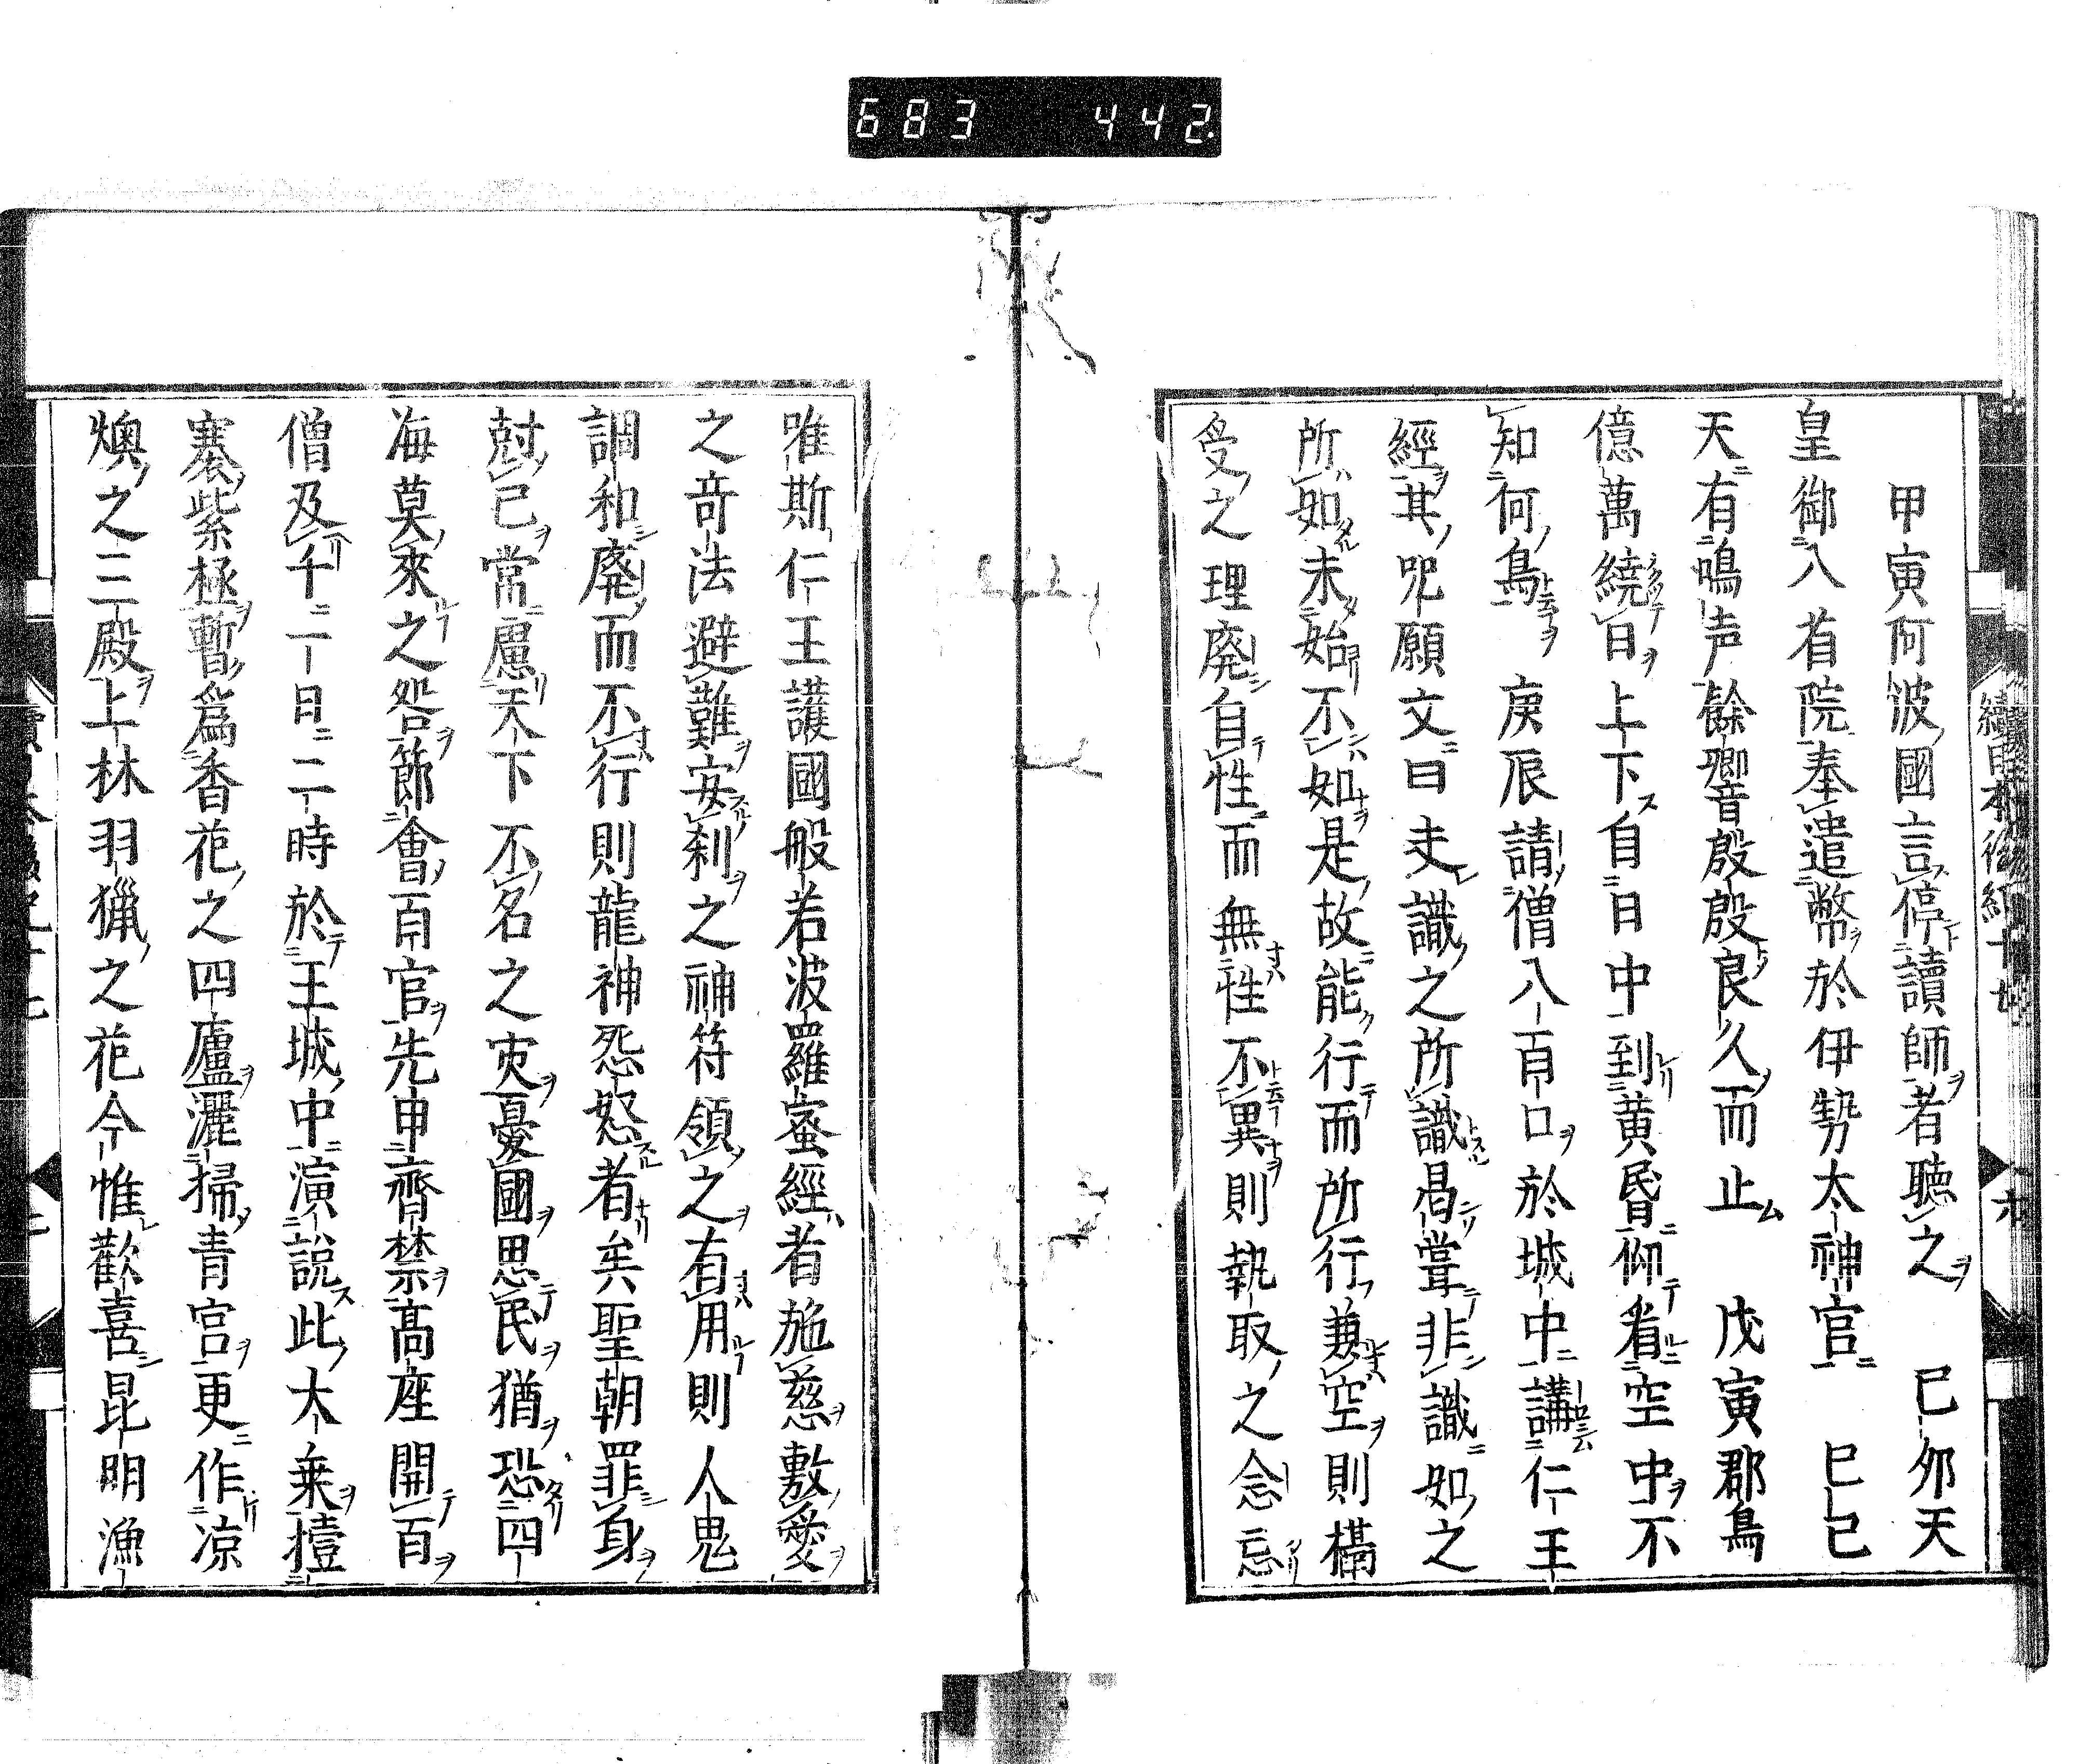 683 442
甲寅阿波國言停讀師者聽之 己夘天
皇御八省院奉遣幣於伊勢太神官 巳已
天有鳴声餘響殷殷良久而止 戊寅郡鳥
億萬繞日上下自日中到黄昏仰看空中不
知何鳥 庚辰請僧八百口於城中講仁王
經其呪願文曰夫識之所識曷甞非識如之
所如未始不如是故能行而所行兼空則𣠽
受之理廃自性而無性不異則執取之念忘
唯斯仁王護國般若波羅蜜經者施慈敷愛
之竒法避難安刹之神符領之有用則人鬼
調和廃而不行則龍神怨怒者矣聖朝罪身
尅己常慮天下不名之灾憂國思民猶恐四
海莫來之咎節會百官先申齊禁髙座開百
僧及千二日二時於王城中演説此大乗擡
褰紫極暫爲香花之四廬灑掃青宮更作凉
燠之三殿上林羽獵之花今惟歡喜昆明漁
續日本後紀十七 六